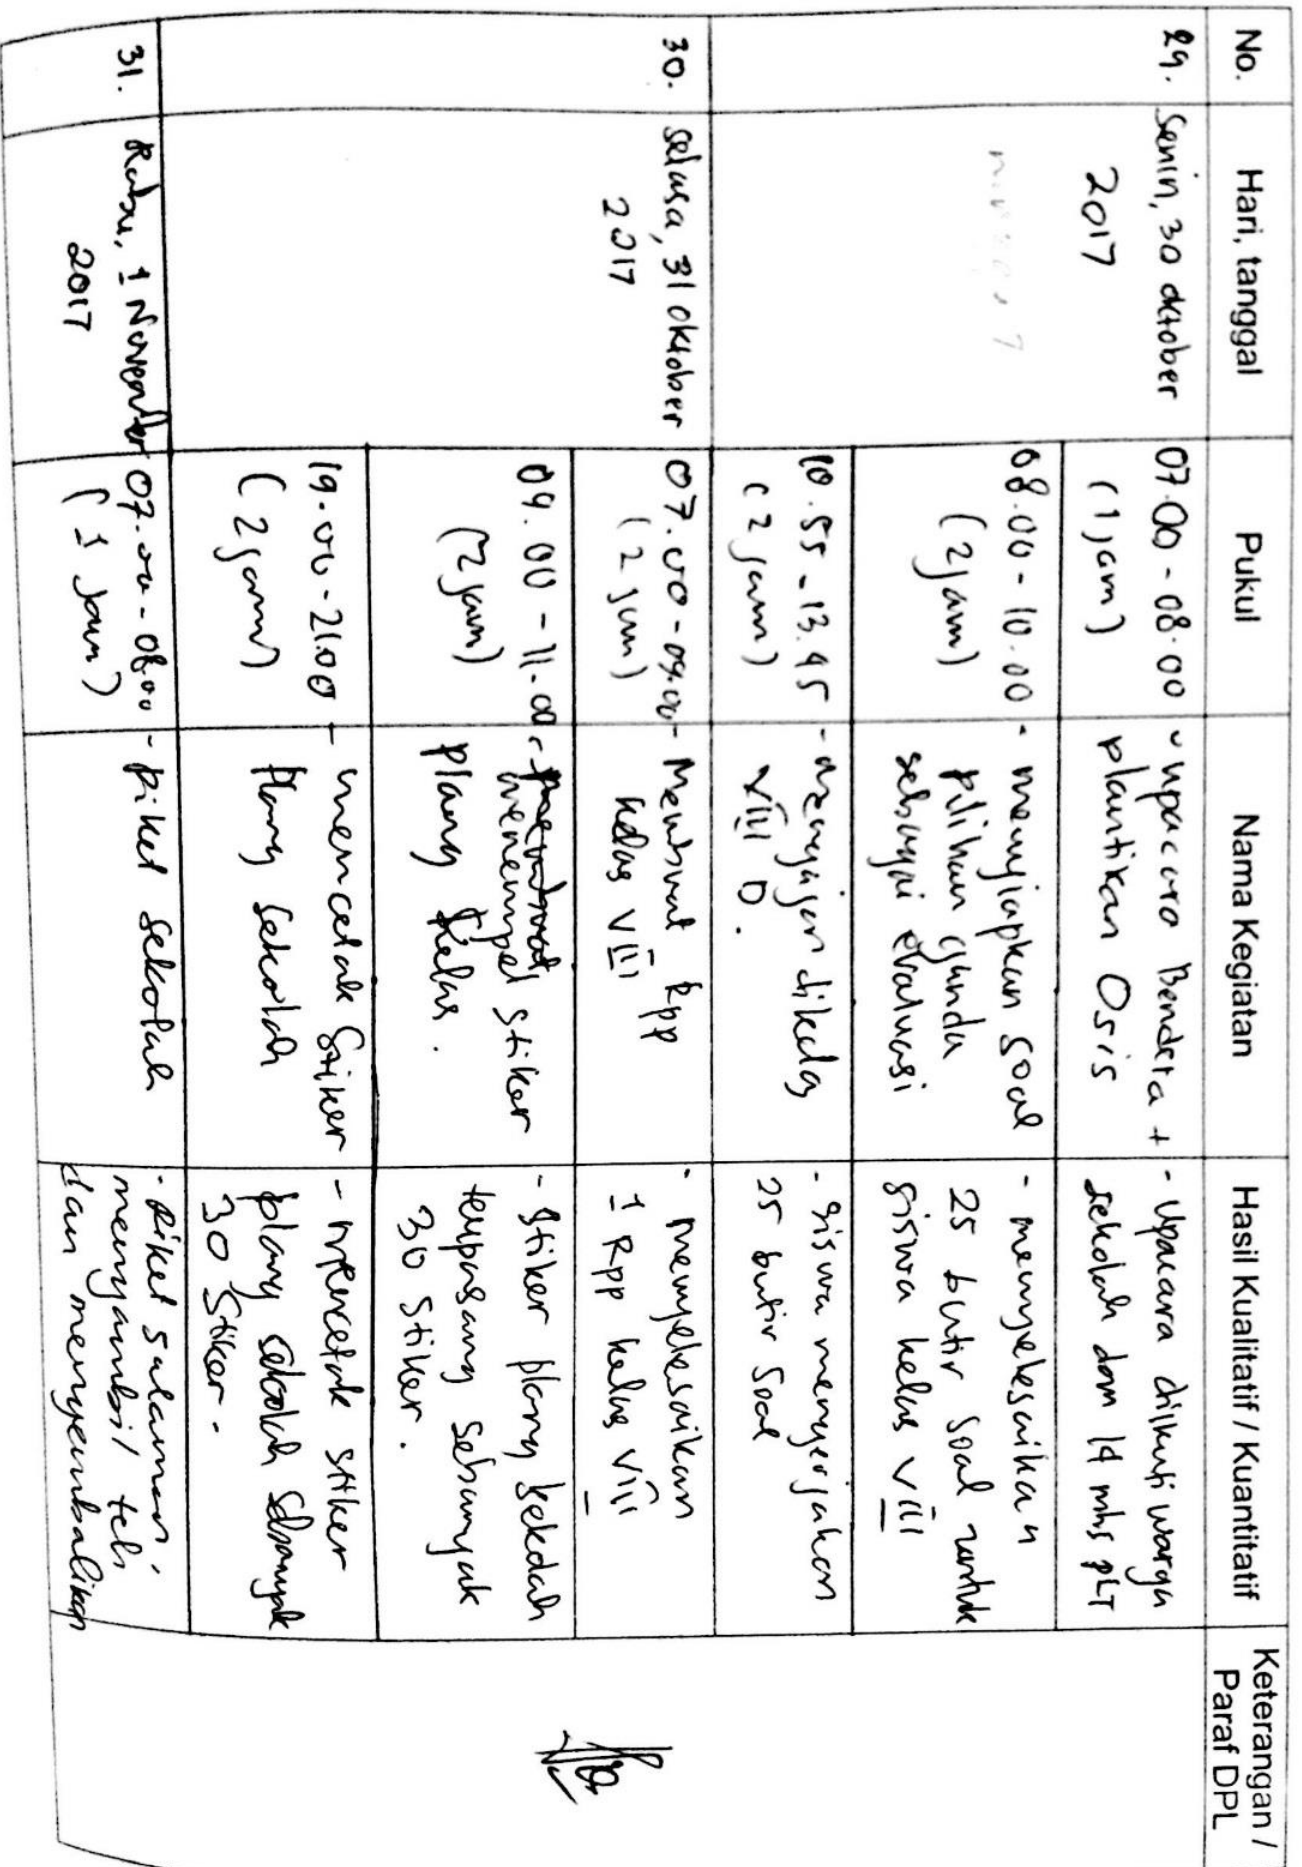 No.
Hari, tanggal
Pukul
Nama Kegiatan
Hasil Kualitatif / Kuantitatif
Keterangan /
Paraf DPL
29.
Senin, 30 Oktober
2017
07.00 - 08.00
(1 jam)
- Upacara Bendera +
plantikan Osis
- Upacara diikuti warga
sekolah dan 14 mhs PLT
08.00 - 10.00
(2 jam)
- menyiapkan soal
pilihan ganda
sebagai evaluasi
- menyelesaikan
25 butir soal untuk
siswa kelas VIII
10.55 - 13.45
(2 jam)
- mengajar dikelas
VIII D.
- siswa mengerjakan
25 butir soal
30.
selasa, 31 Oktober
2017
07.00 - 09.00
(2 jam)
- Membuat Rpp
kelas VIII
- menyelesaikan
1 Rpp kelas VIII
09.00 - 11.00
(2 jam)
- menempel stiker
plang kelas.
- stiker plang sekolah
terpasang sebanyak
30 stiker.
19.00 - 21.00
(2 jam)
- mencetak stiker
plang sekolah
- mencetak stiker
plang sekolah sebanyak
30 stiker.
31.
Rabu, 1 November
2017
07.00 - 08.00
(1 jam)
- piket sekolah
- piket salaman,
mengambil teh
dan mengembalikan